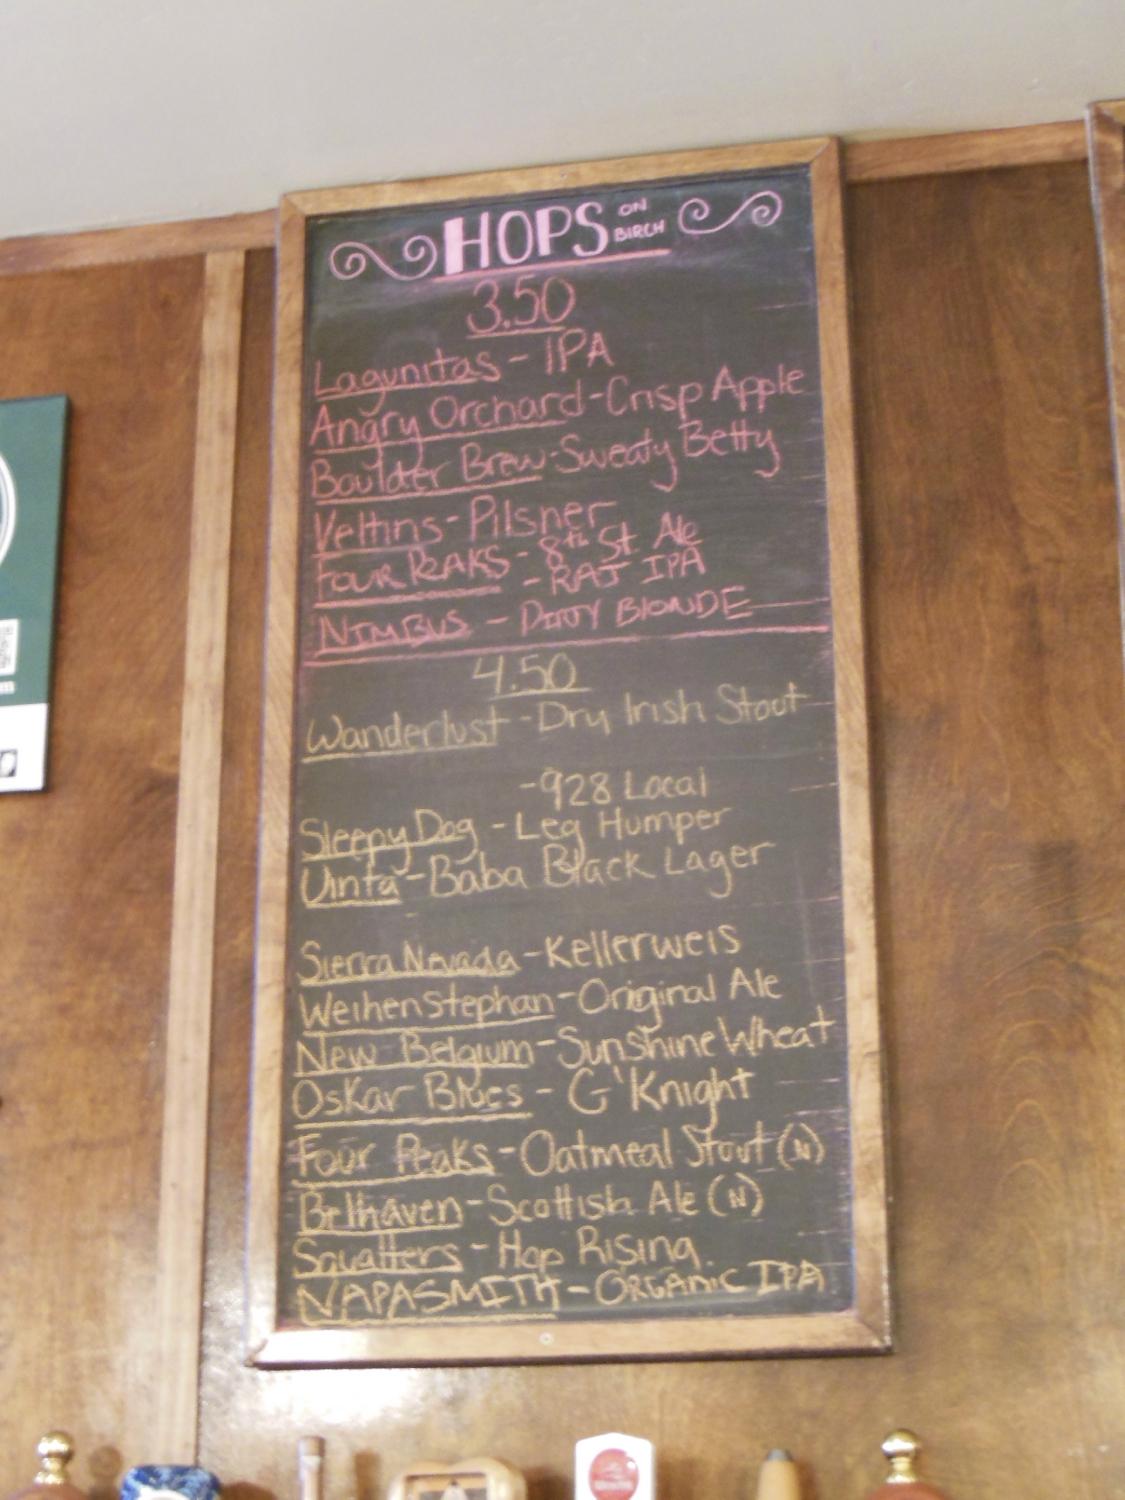 HOPS ON BIRCH
3.50
Lagunitas - IPA
Angry Orchard - Crisp Apple
Boulder Brew - Sweaty Betty
Veltins - Pilsner
FOUR PEAKS - 8th St Ale
- RAJ IPA
NIMBUS - DIRTY BLONDE
4.50
Wanderlust - Dry Irish Stout
- 928 Local
Sleepy Dog - Leg Humper
Uinta - Baba Black Lager
Sierra Nevada - Kellerweis
Weihenstephan - Original Ale
New Belgium - Sunshine Wheat
Oskar Blues - G'Knight
Four Peaks - Oatmeal Stout (N)
Belhaven - Scottish Ale (N)
Squatters - Hop Rising
NAPASMITH - ORGANIC IPA